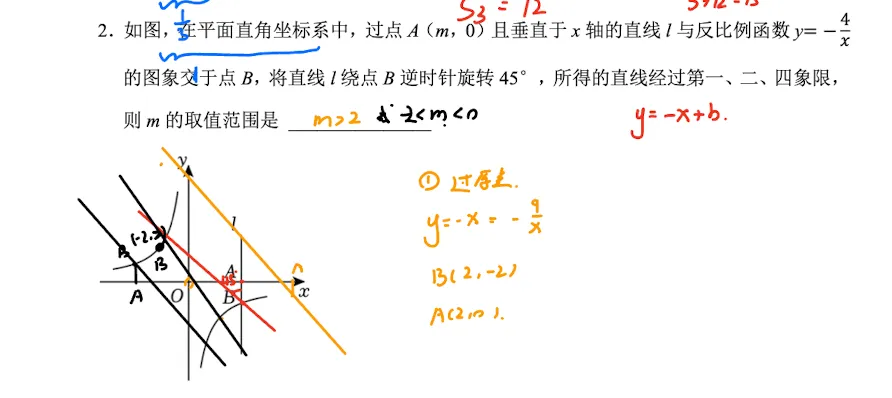 S₃ = 12
2. 如图，在平面直角坐标系中，过点 A（m，0）且垂直于 x 轴的直线 l 与反比例函数 y= −4/x
的图象交于点 B，将直线 l 绕点 B 逆时针旋转 45°，所得的直线经过第一、二、四象限，
则 m 的取值范围是 m>2 或 -2<m<0
y=-x+b.
y
① 过原点.
l
y=-x=-
(-2,2)
B
B
A
B(2,-2)
A
O
B
x
A(2,0).